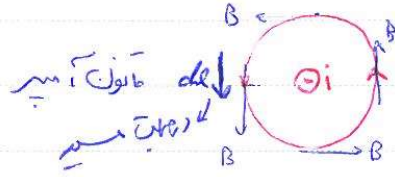 B
B
قانون آمپر dl ⊙i
در جهت مسیر
B B